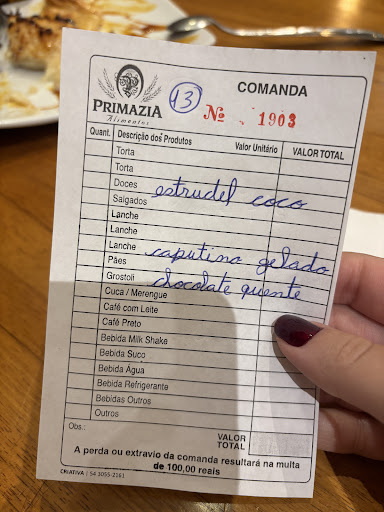 PRIMAZIA
Alimentos
13
COMANDA
Nº 1903
Quant. Descrição dos Produtos Valor Unitário VALOR TOTAL
Torta
Torta
Doces estrudel coco
Salgados
Lanche
Lanche
Lanche caputino gelado
Pães
Grostoli chocolate quente
Cuca / Merengue
Café com Leite
Café Preto
Bebida Milk Shake
Bebida Suco
Bebida Água
Bebida Refrigerante
Bebidas Outros
Outros
Obs.: VALOR TOTAL
A perda ou extravio da comanda resultará na multa
de 100,00 reais
CRIATIVA | 54 3055-2161